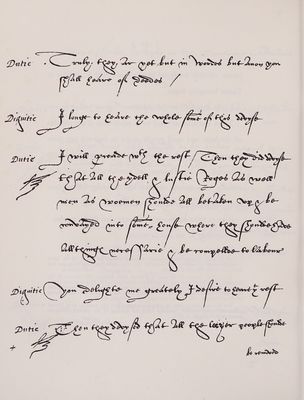 Dutie. Truly, they ar not but in wordes but anon you
shall heare of deedes /
Dignitie I longe to heare the whole some of this devyse
Dutie I will proceade wth the rest / Then they did devyse
that all the ydell & lustie Roges as well
men as woomen shoulde all be taken upp & be
conveyed into some house where they shoulde have
all things necessarie & be compelled to labour
Dignitie you delighte me greately I desire to heare ye rest
Dutie Then they devysed that all the leazer people shoulde
be conveded